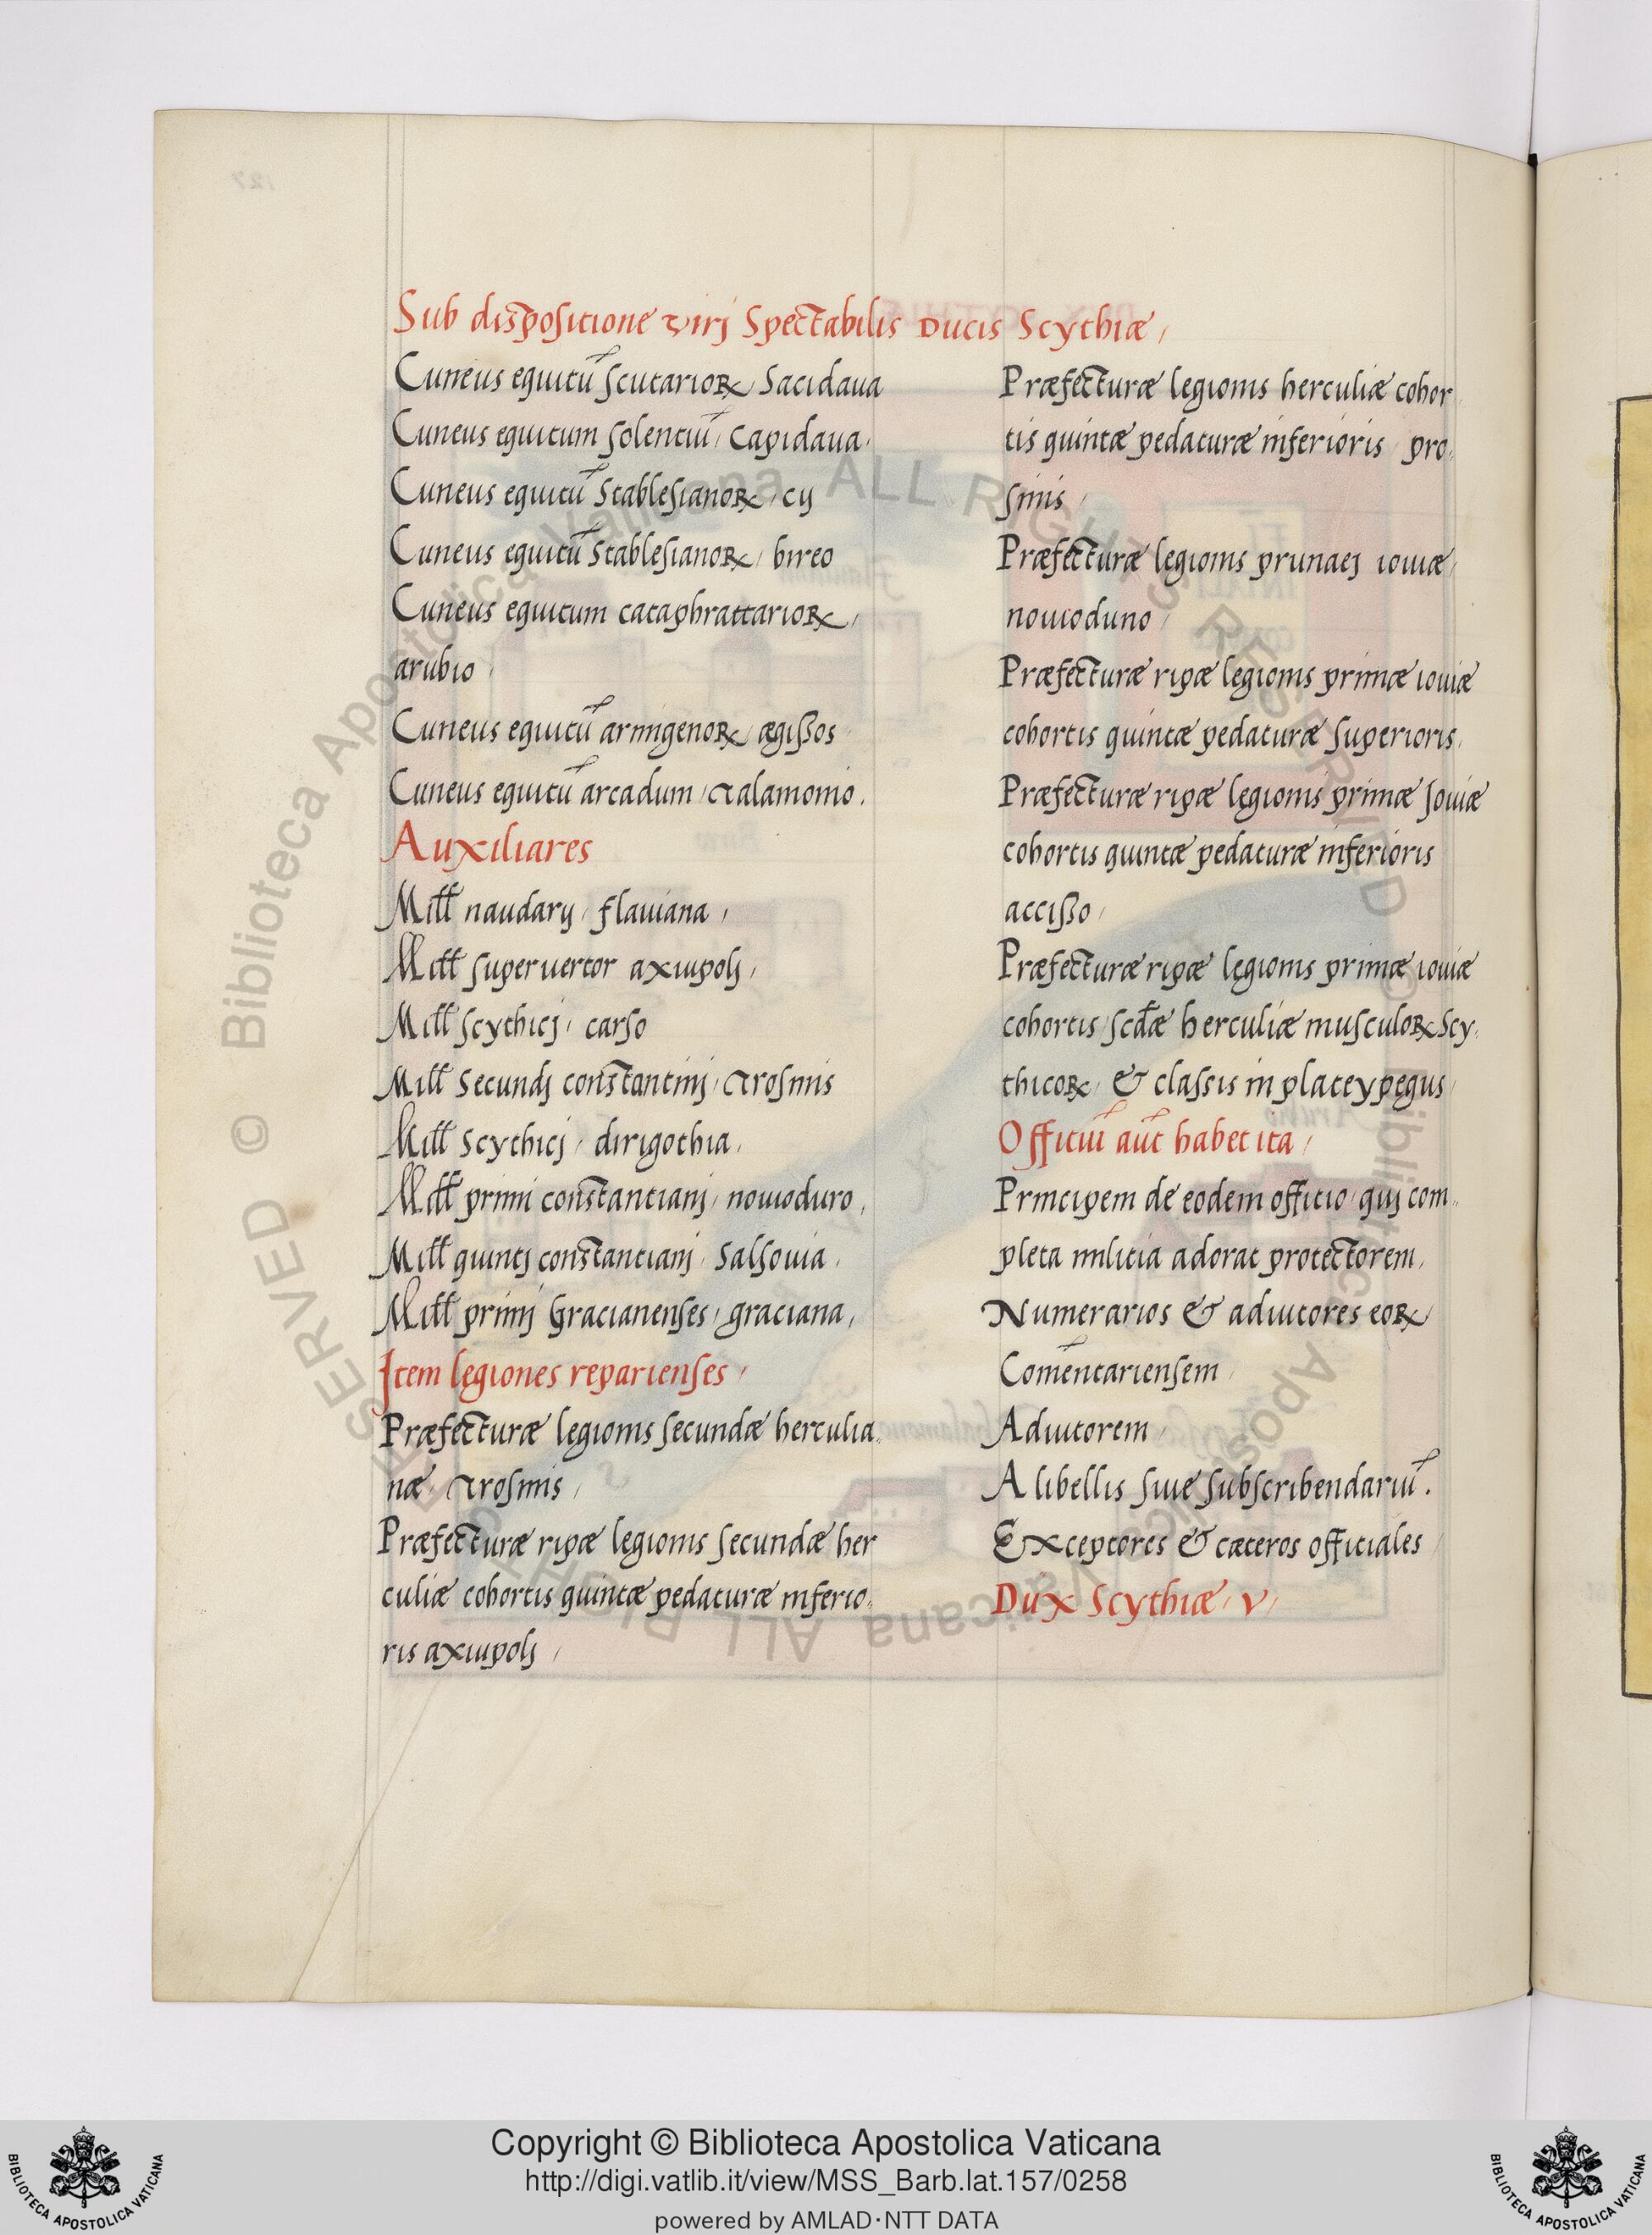 Sub dispositione virj Spectabilis Ducis Scythiæ /
Cuneus equitū scutarioꝝ Sacidaua
Cuneus equitum solentiū / Capidaua /
Cuneus equitū Stablesianoꝝ / cij
Cuneus equitū Stablesianoꝝ / bireo
Cuneus equitum cataphrattarioꝝ /
arubio /
Cuneus equitū armigeroꝝ / ægissos
Cuneus equitū arcadum / Talamonio.
Auxiliares
Milł naudarij / flauiana /
Milł superuertor axiupolj /
Milł scythicj / carso
Milł Secundj constantinj / Trosmis
Milł scythicj / dirigothia /
Milł primi constantianj / nouioduro /
Milł quintj constantianj / Salsouia /
Milł primj Gracianenses / graciana /
Item legiones reparienses /
Præfecturæ legionis secundæ herculia
næ / Trosmis /
Præfecturæ ripæ legionis secundæ her
culiæ cohortis quintæ pedaturæ inferio
ris axiupolj /
Præfecturæ legionis herculiæ cohor
tis quintæ pedaturæ inferioris / pro
smis /
Præfecturæ legionis prunaej iouiæ /
nouioduno /
Præfecturæ ripæ legionis primæ iouiæ
cohortis quintæ pedaturæ superioris /
Præfecturæ ripæ legionis primæ Iouiæ
cohortis quintæ pedaturæ inferioris
accisso /
Præfecturæ ripæ legionis primæ iouiæ
cohortis scdæ herculiæ musculoꝝ Scy
thicoꝝ / & classis in plateypegus /
Officiū aūt habet ita /
Principem de eodem officio quj com
pleta militia adorat protectorem /
Numerarios & adiutores eoꝝ /
Comēntariensem /
Adiutorem /
A libellis siue subscribendariū.
Exceptores & cæteros officiales /
Dux Scythiæ / v /
© Biblioteca Apostolica Vaticana ALL RIGHTS RESERVED
© Biblioteca Apostolica Vaticana ALL RIGHTS RESERVED
Copyright © Biblioteca Apostolica Vaticana
http://digi.vatlib.it/view/MSS_Barb.lat.157/0258
powered by AMLAD·NTT DATA
BIBLIOTECA APOSTOLICA VATICANA
BIBLIOTECA APOSTOLICA VATICANA